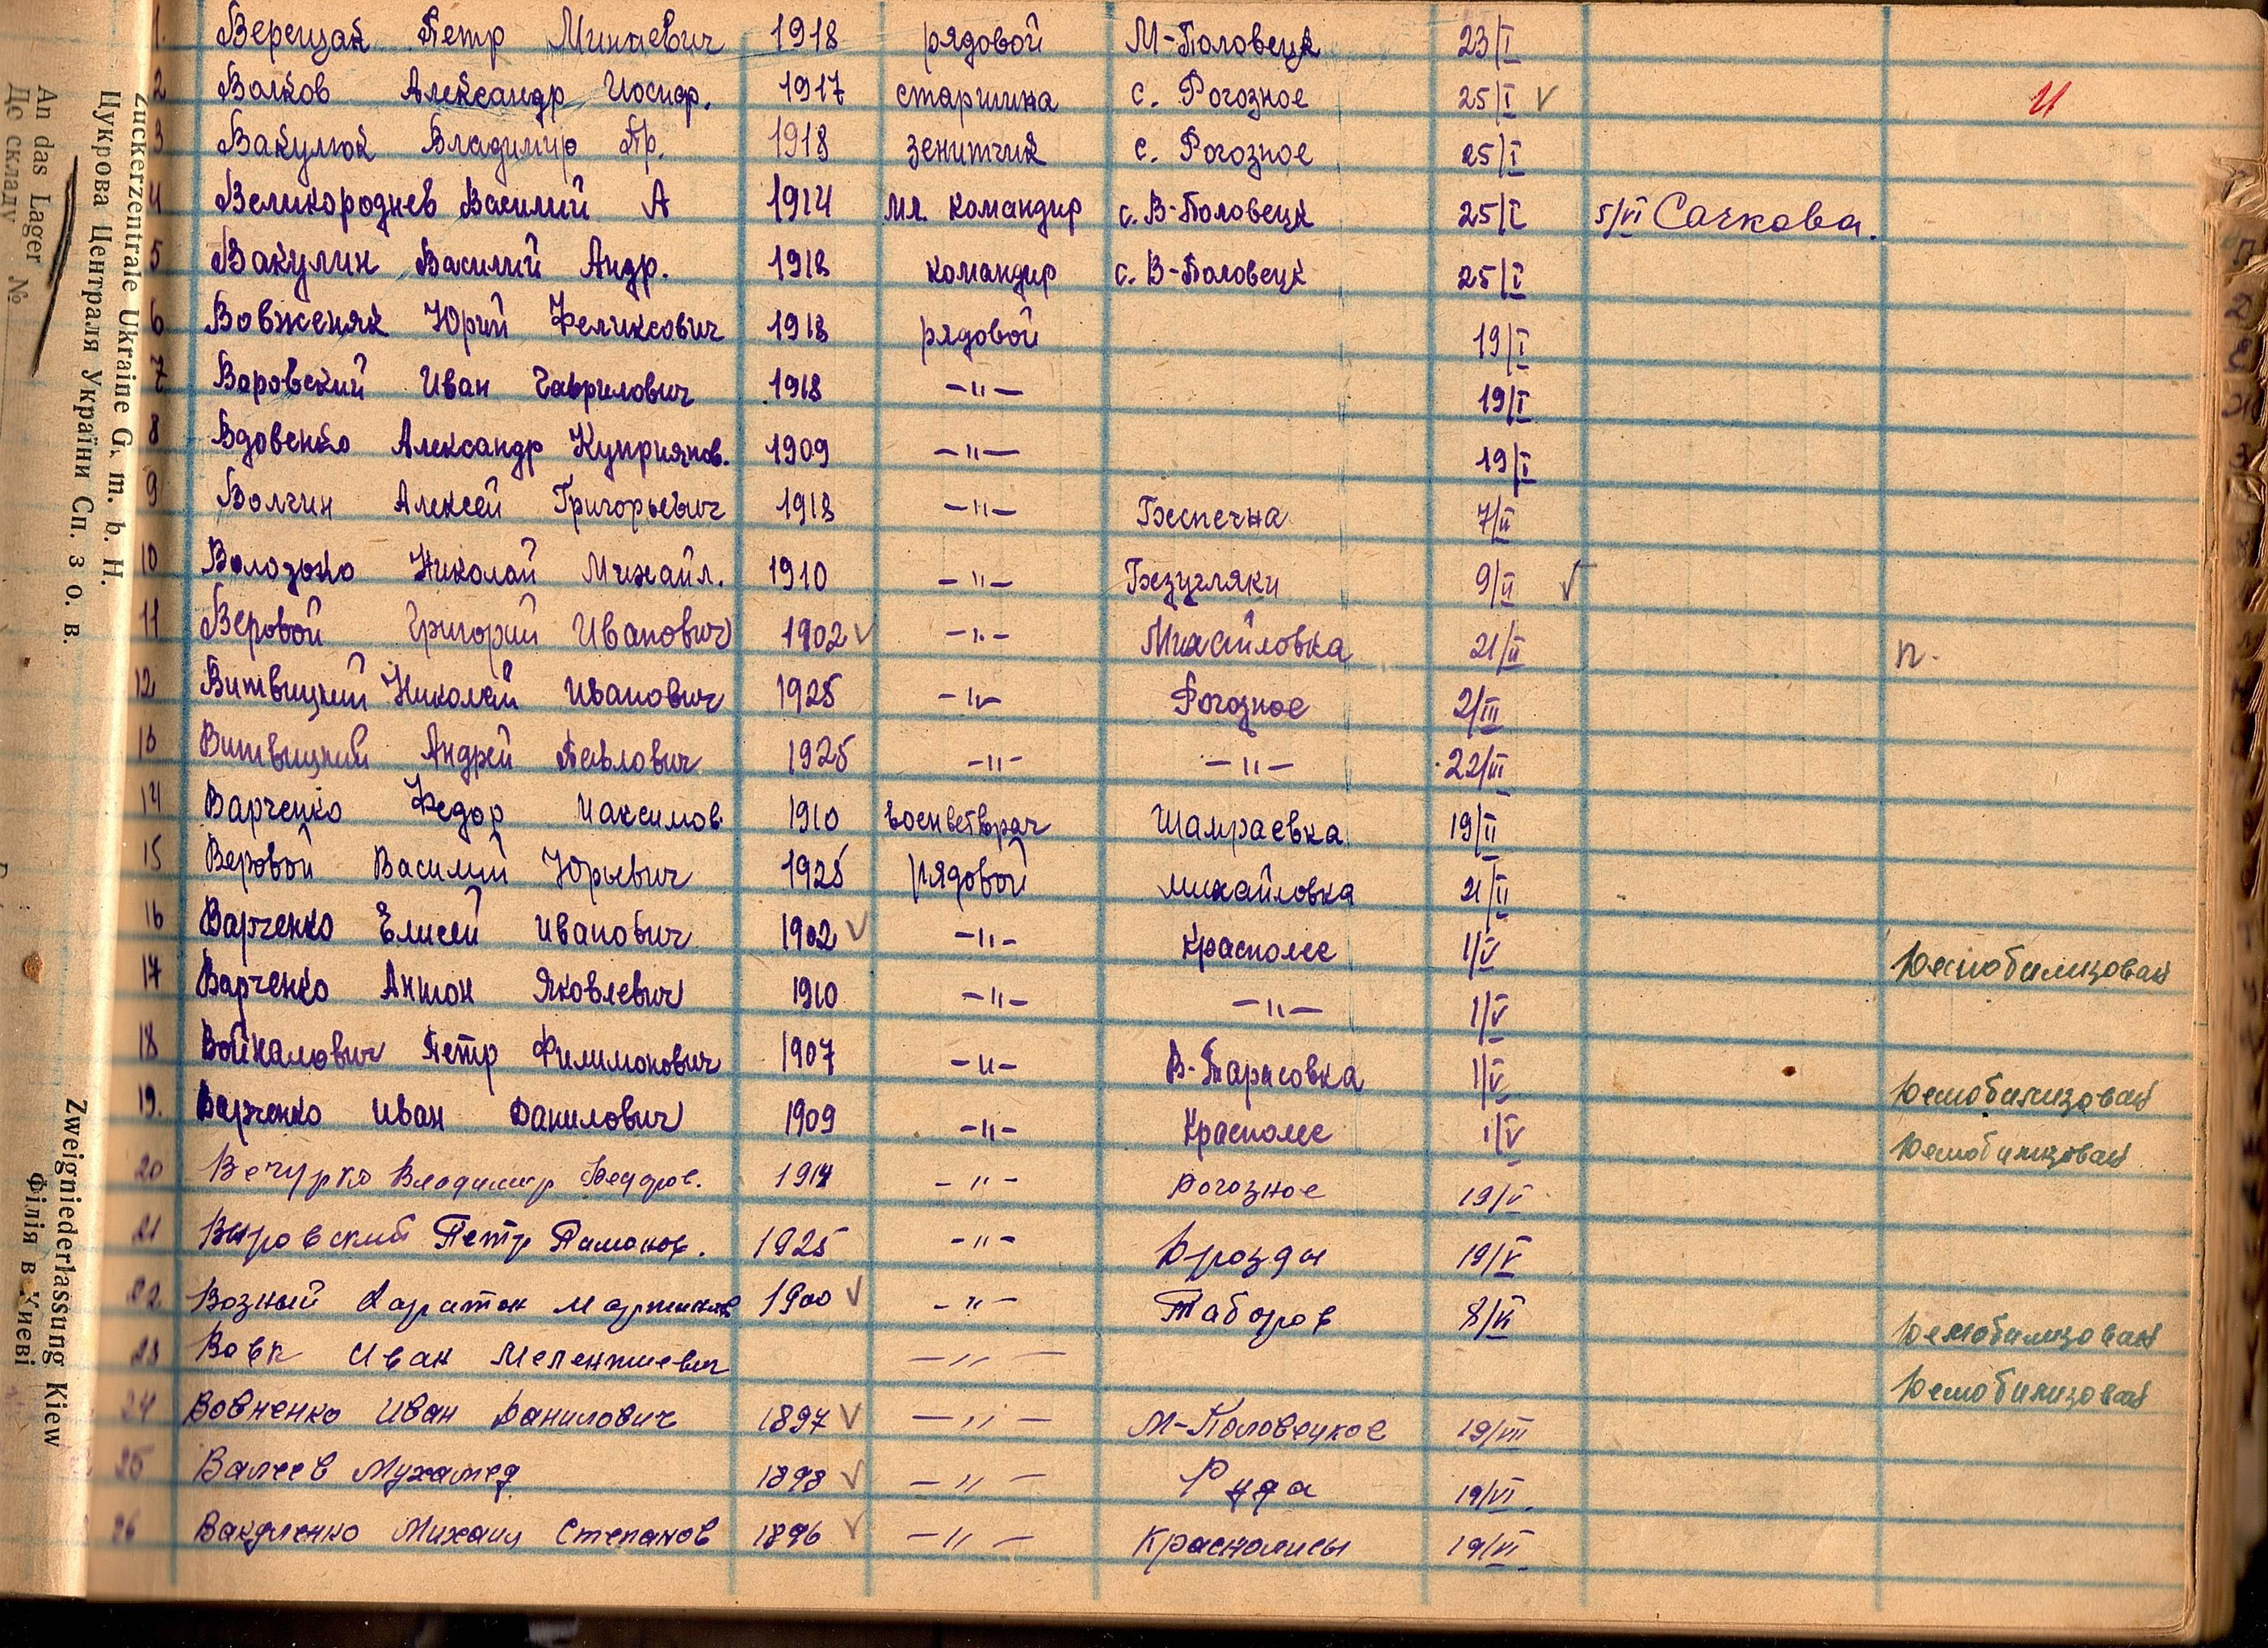 1. Верещак Петр Минаевич 1918 рядовой М-Половецк 23/I
2 Волков Александр Иосиф. 1917 старшина с. Рогозное 25/I ✓
3 Вакулюк Владимир Пр. 1918 зенитчик с. Рогозное 25/I
4 Великороднев Василий А 1914 мл. командир с. В-Половецк 25/I 5/VI Сачкова.
5 Вакулин Василий Андр. 1918 командир с. В-Половецк 25/I
6 Вовженяк Юрий Феликсович 1918 рядовой 19/I
7 Воровский Иван Гаврилович 1918 —"— 19/I
8 Вдовенко Александр Куприянов. 1909 —"— 19/I
9 Волчин Алексей Григорьевич 1918 —"— Беспечна 7/II
10 Николай Михайл. 1910 —"— Безугляки 9/II ✓
11 Веровой Григорий Иванович 1902 ✓ —"— Михайловка 21/II п.
12 Витвицкий Николай Иванович 1925 —"— Рогозное 2/III
13 Витвицкий Андрей Павлович 1925 —"— —"— 22/III
14 Варченко Федор Максимов 1910 военветврач Шамраевка 19/II
15 Веровой Василий Юрьевич 1925 рядовой Михайловка 21/II
16 Варченко Елисей Иванович 1902 ✓ —"— Красполес 1/V Демобилизован
17 Варченко Антон Яковлевич 1910 —"— —"— 1/V
18 Войналович Петр Филимонович 1907 —"— В-Тарасовка 1/V Демобилизован
19. Варченко Иван Данилович 1909 —"— Красполес 1/V Демобилизован
20 Вечурко Владимир Федоров. 1914 —"— Рогозное 19/V
21 Петр 1925 —"— Дрозды 19/V
22 Возный Харитон Мартинов 1900 ✓ —"— Таборов 8/VI Демобилизован
23 Вовк Иван Мелентиевич —"— Демобилизован
24 Вовненко Иван Данилович 1897 ✓ —"— М-Половецкое 19/VII
25 Валеев Мухамед 1898 ✓ —"— Руда 19/VI.
26 Вакуленко Михаил Степанов 1896 ✓ —"— Краснолисы 19/VI
Zuckerzentrale Ukraine G. m. b. H.
Цукрова Централя України Сп. з о. в.
An das Lager №
До складу
Zweigniederlassung Kiew
Філія в Києві